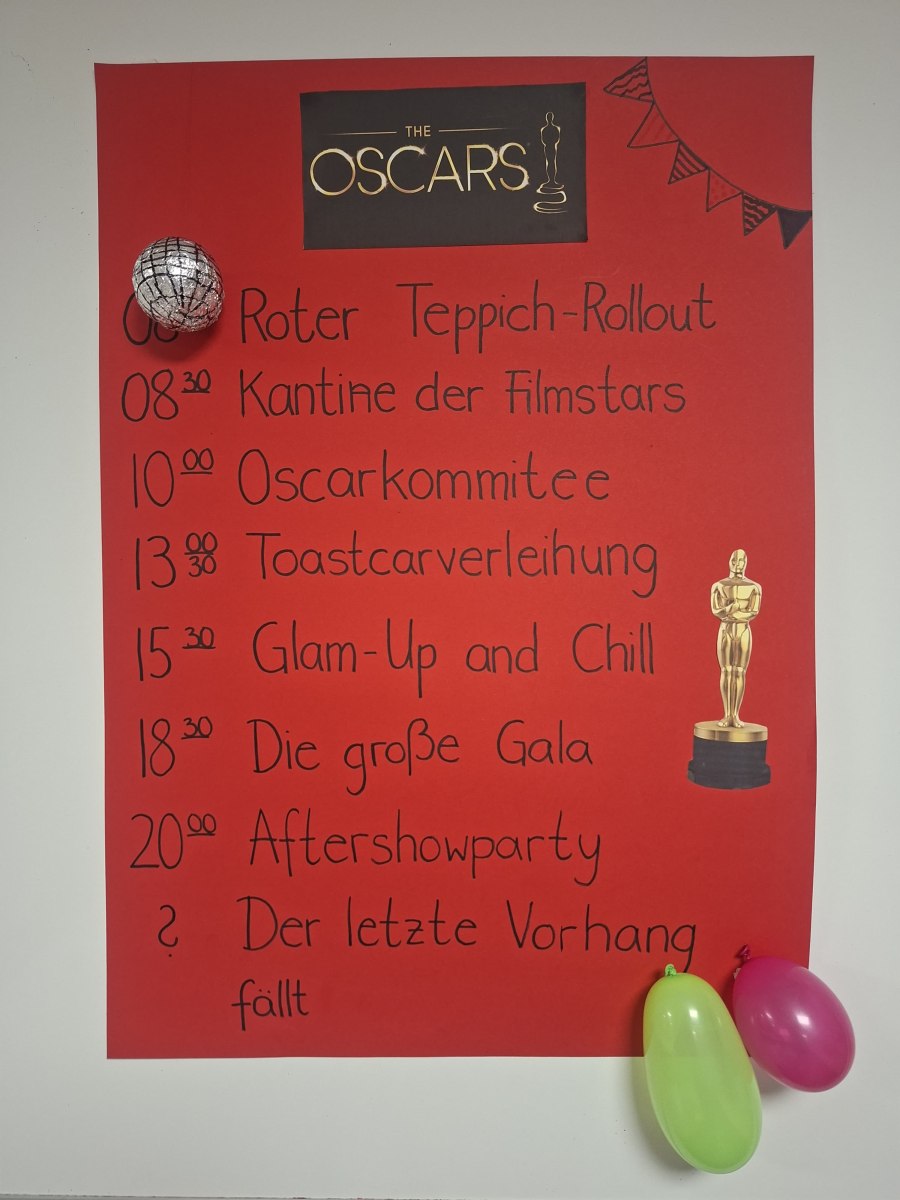 THE
OSCARS
Roter Teppich-Rollout
08 30 Kantine der Filmstars
10 00 Oscarkommitee
13 00 30 Toastcarverleihung
15 30 Glam-Up and Chill
18 30 Die große Gala
20 00 Aftershowparty
? Der letzte Vorhang
fällt